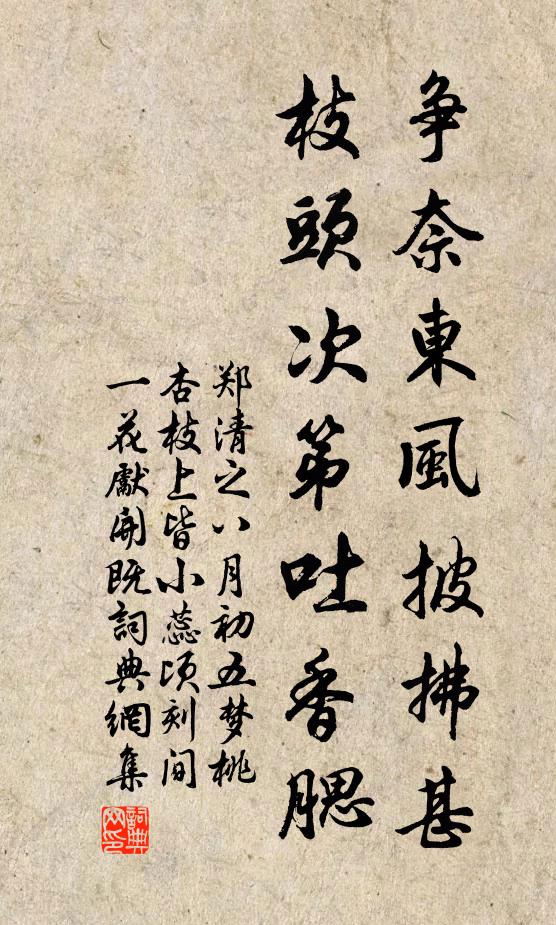 争奈東風披拂甚
枝頭次第吐香腮
郑清之八月初五梦桃
杏枝上皆小蕊頃刻间
一花獻開既詞典網集
詞典网印